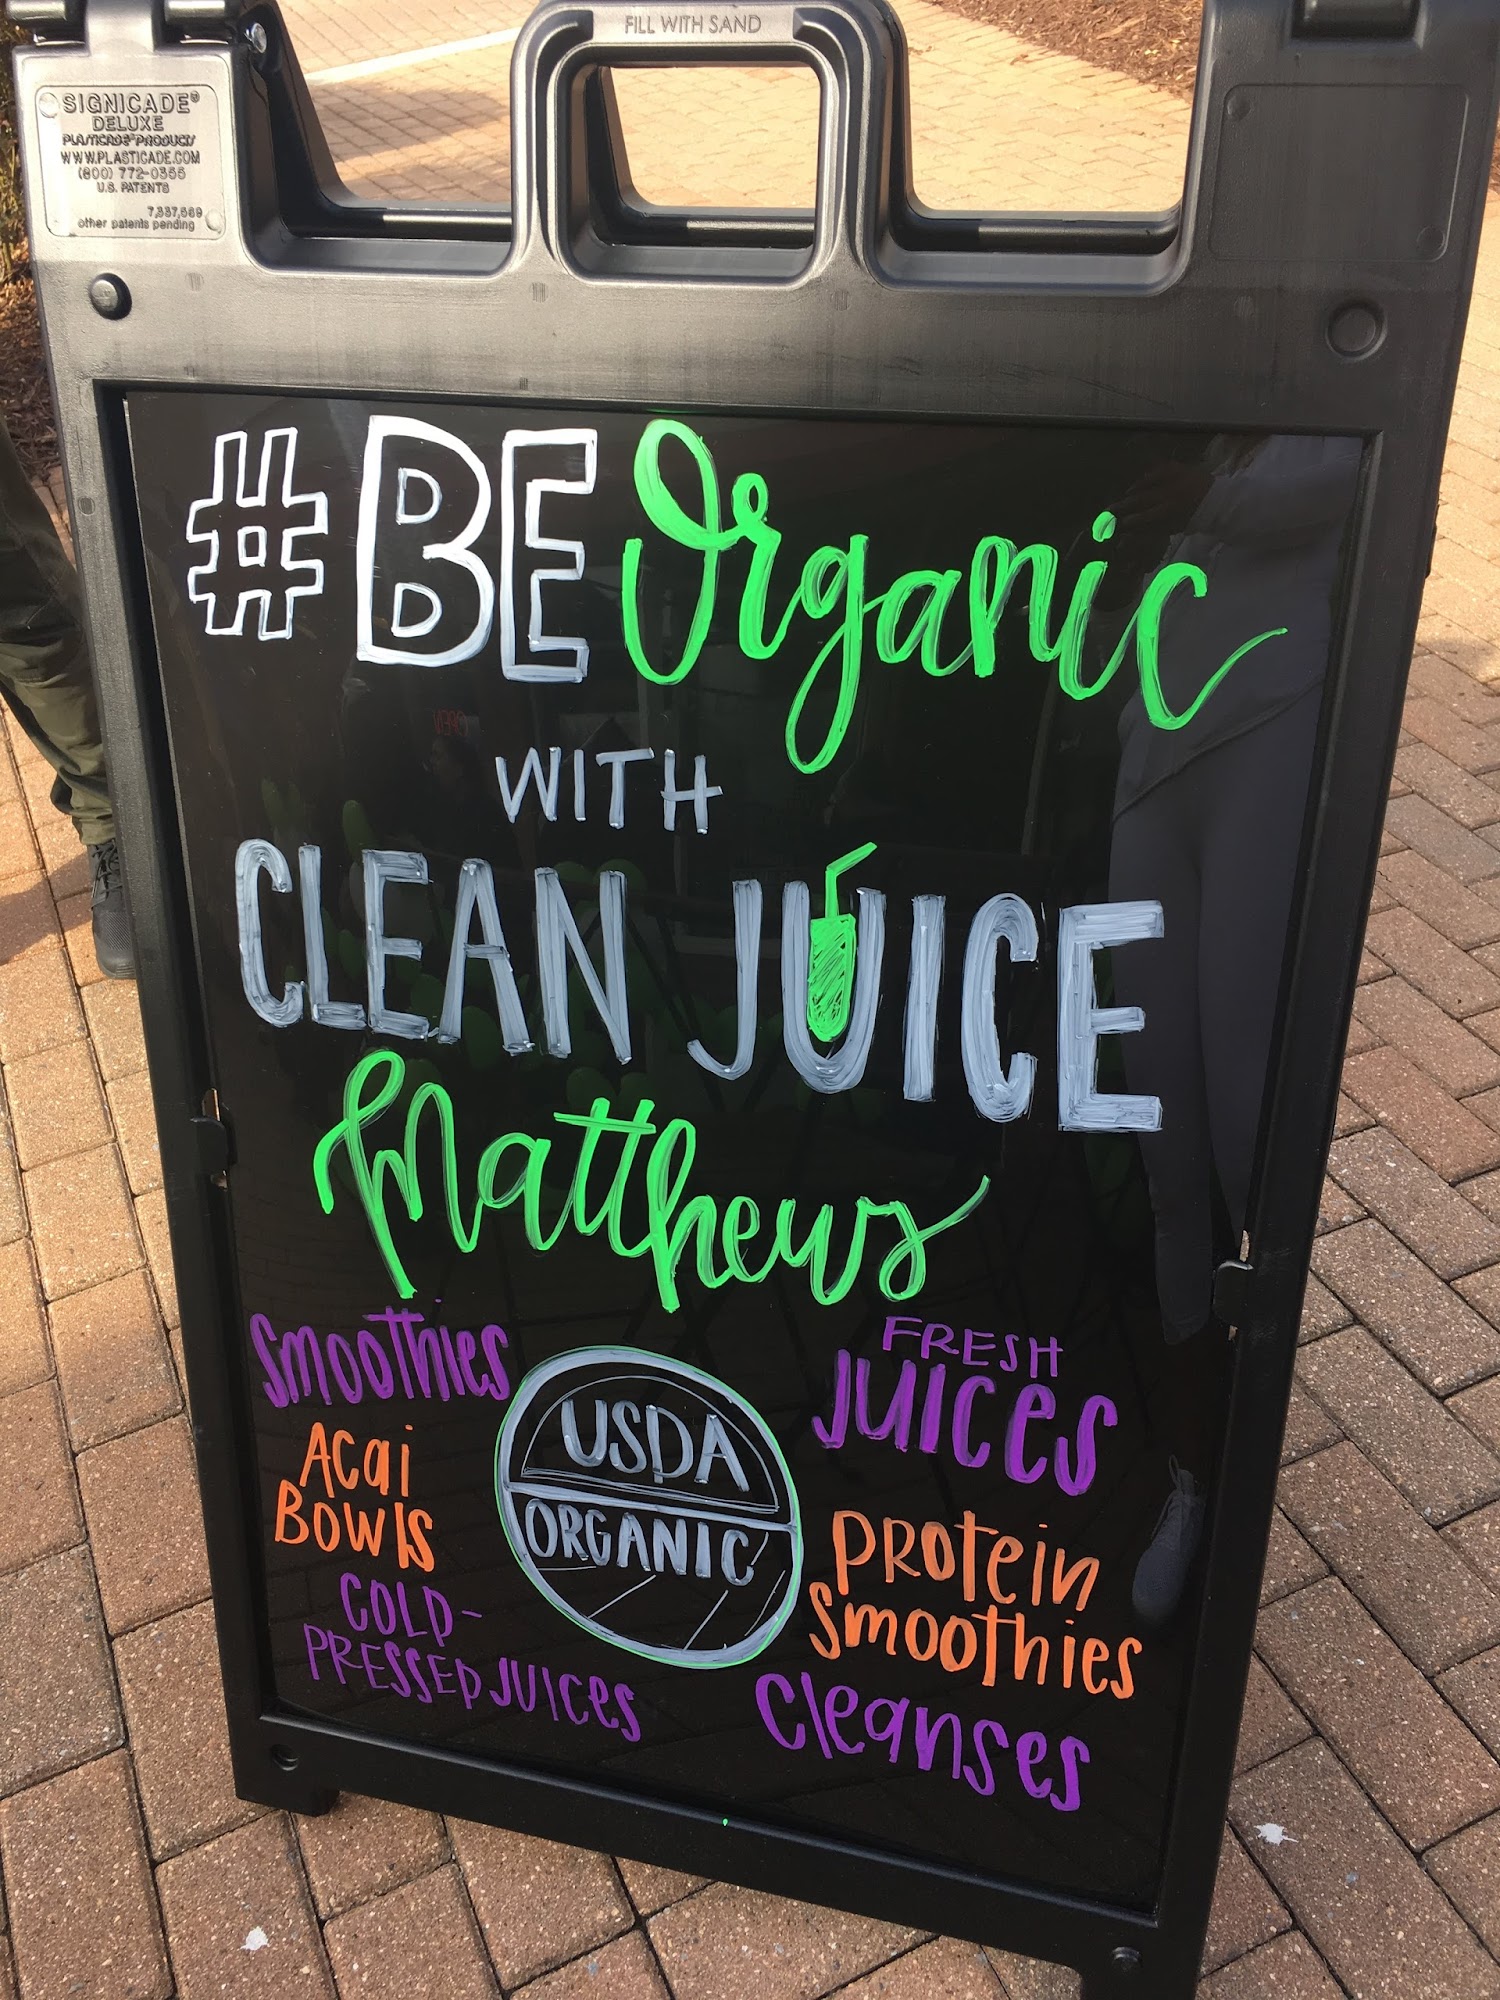 FILL WITH SAND
SIGNICADE®
DELUXE
PLASTICADE® PRODUCTS
WWW.PLASTICADE.COM
(800) 772-0355
U.S. PATENTS
7,337,569
other patents pending
#BE Organic
WITH
CLEAN JUICE
Matthews
Smoothies
Acai
Bowls
COLD-
PRESSED JUICES
USDA
ORGANIC
FRESH
JUICES
PROtein
Smoothies
Cleanses